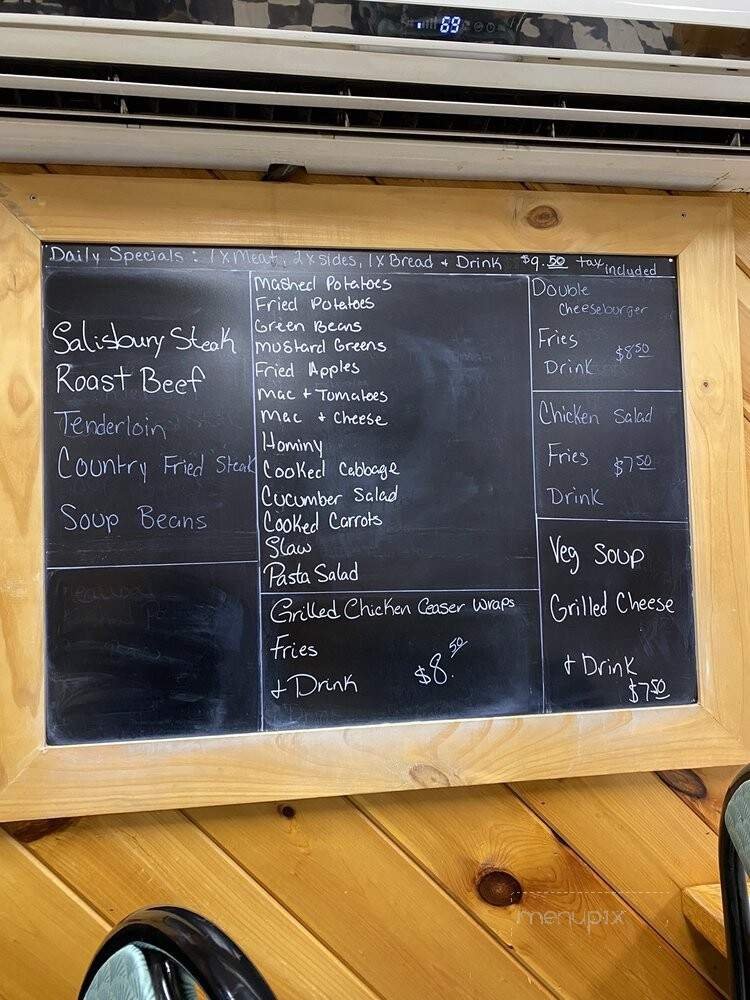 69
Daily Specials: 1x Meat, 2x sides, 1x Bread + Drink $9.50 tax included
Salisbury Steak
Roast Beef
Tenderloin
Country Fried Steak
Soup Beans
Mashed Potatoes
Fried Potatoes
Green Beans
Mustard Greens
Fried Apples
Mac + Tomatoes
Mac + Cheese
Hominy
Cooked Cabbage
Cucumber Salad
Cooked Carrots
Slaw
Pasta Salad
Grilled Chicken Ceaser Wraps
Fries
+ Drink $8.50
Double
Cheeseburger
Fries
Drink $8.50
Chicken Salad
Fries $7.50
Drink
Veg Soup
Grilled Cheese
+ Drink
$7.50
menupix